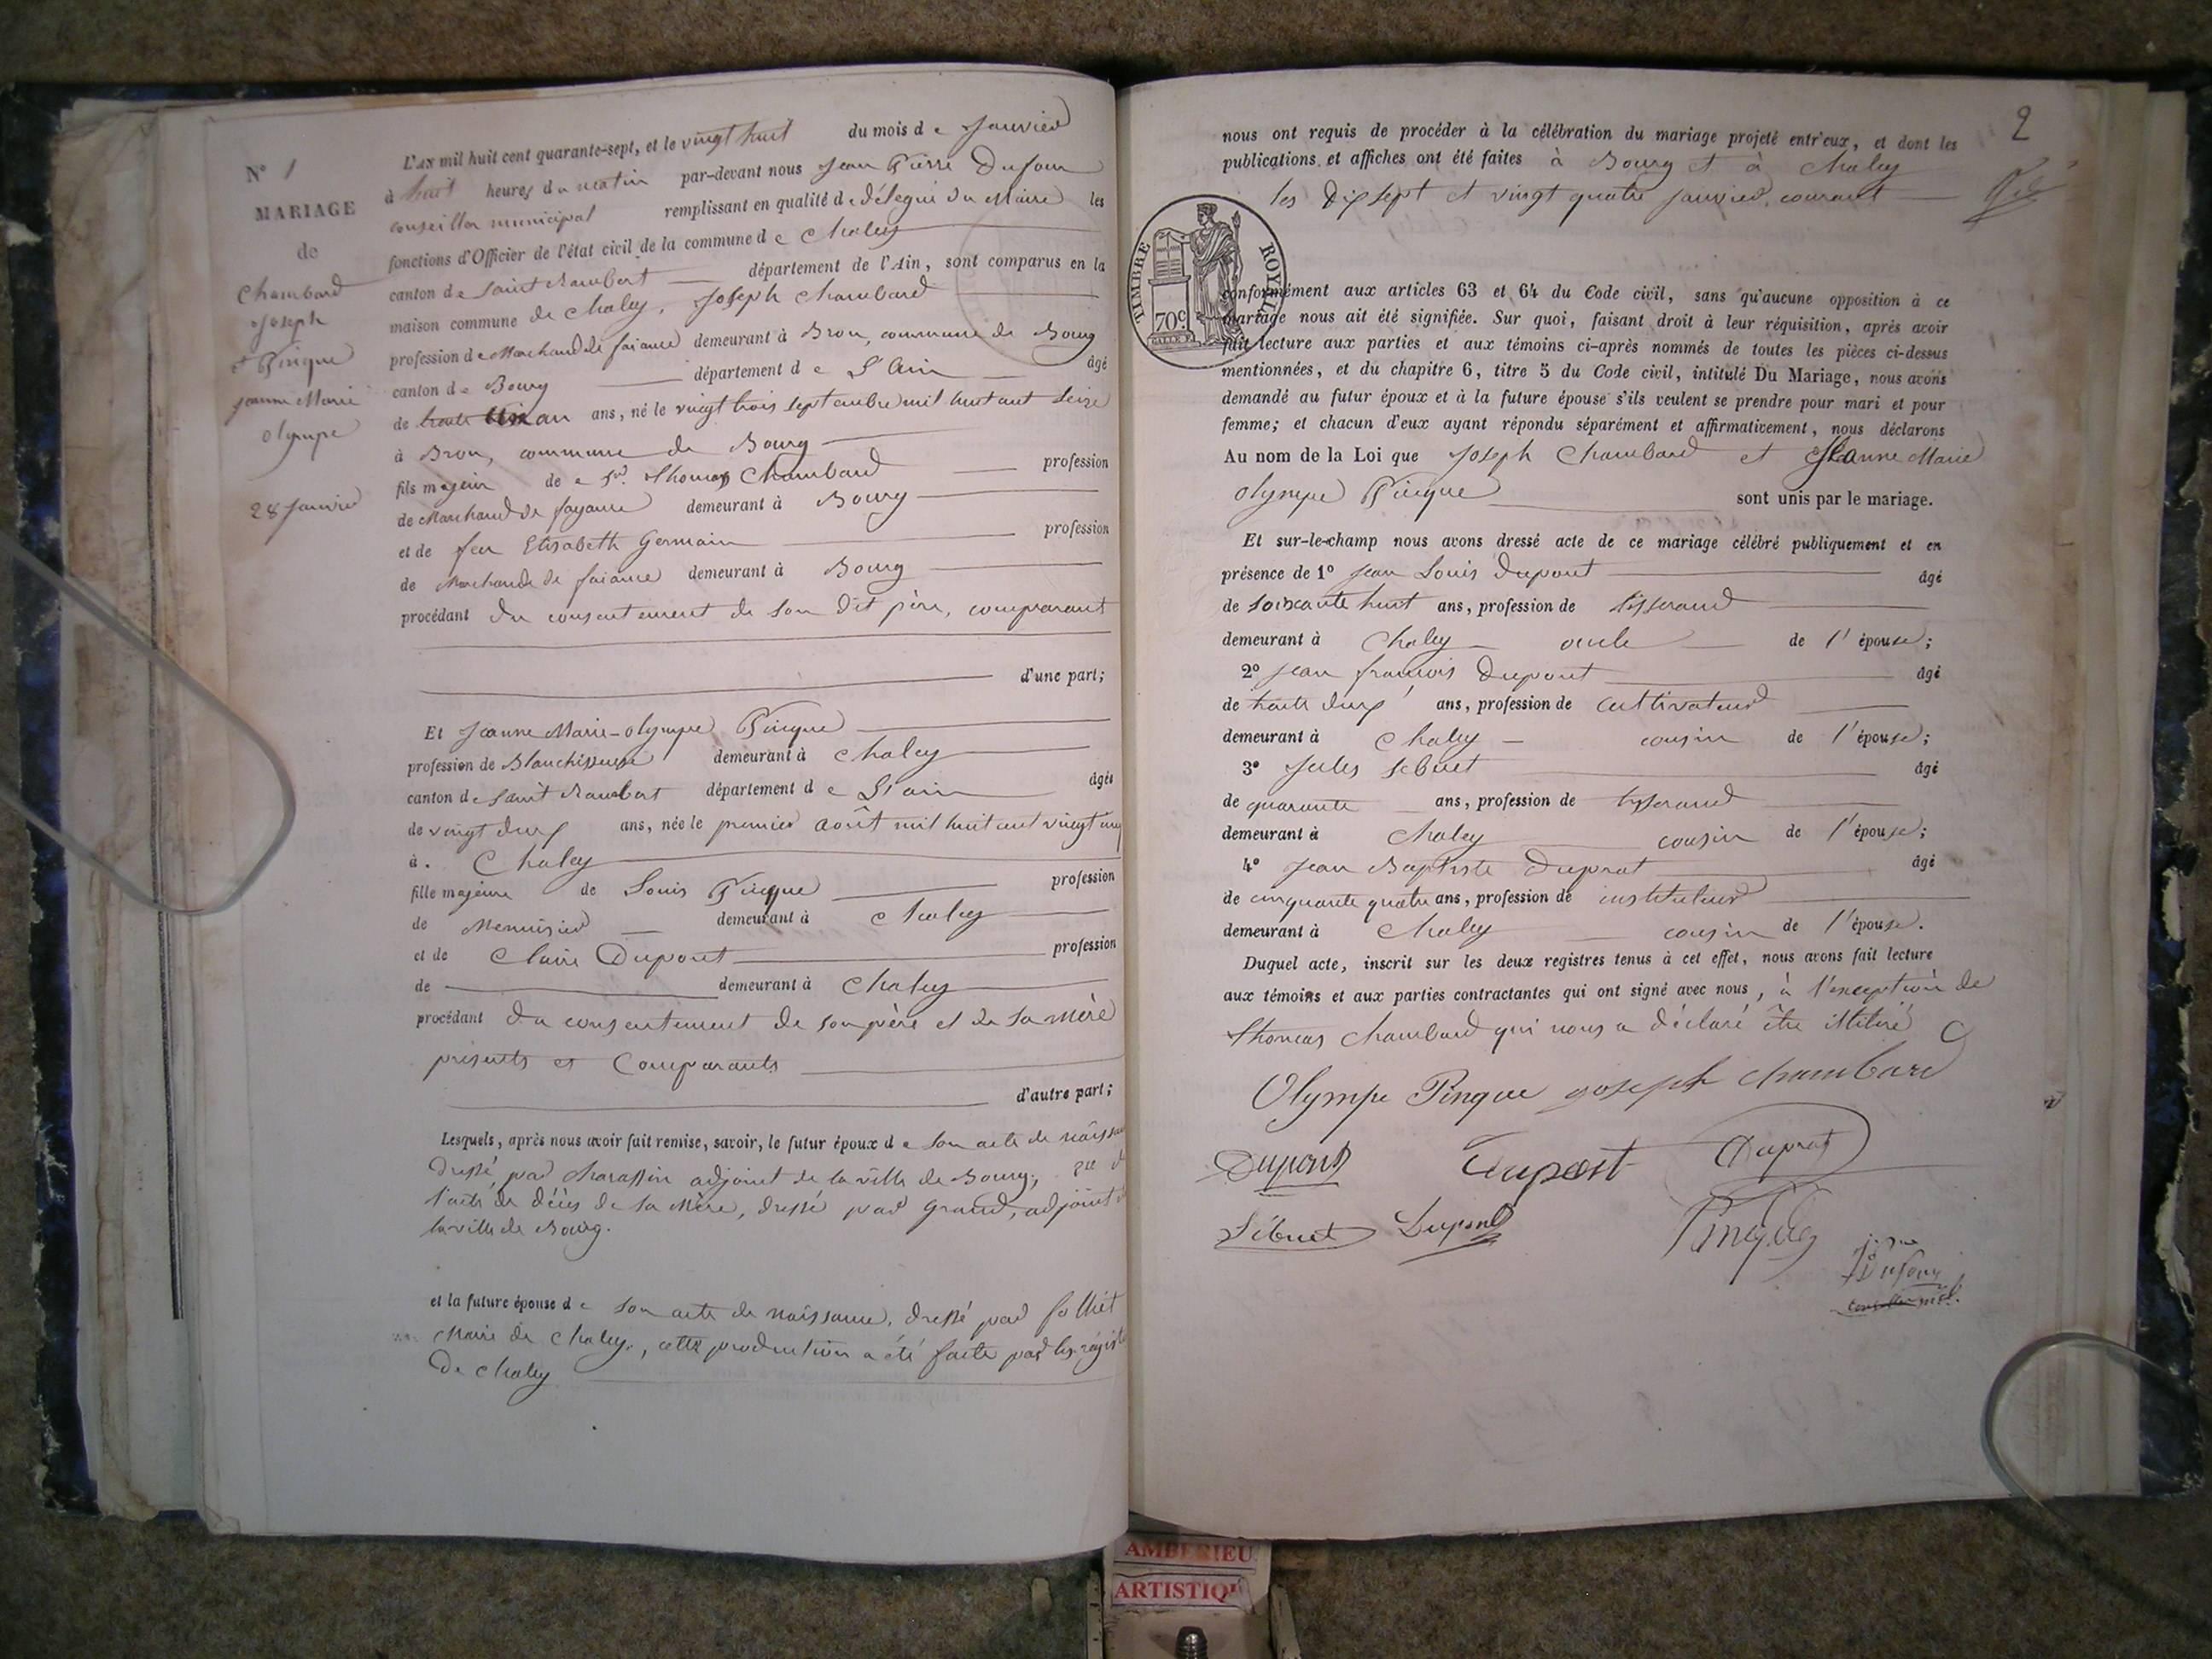 N° 1
MARIAGE
de
Chambard
Joseph
et Pingue
Jeanne Marie
Olympe
28 Janvier
L'AN mil huit cent quarante-sept, et le vingt huit du mois de Janvier
à huit heures du matin par-devant nous Jean Pierre Dufour
conseiller municipal remplissant en qualité de délégué du Maire les
fonctions d'Officier de l'état civil de la commune de Chaley
canton de Saint Rambert département de l'Ain, sont comparus en la
maison commune de Chaley, Joseph Chambard
profession de Marchand de faiance demeurant à Brou, commune de Bourg
canton de Bourg département de L'Ain âgé
de trente un an ans, né le vingt trois septembre mil huit cent seize
à Brou, commune de Bourg
fils majeur de Sr. Thomas Chambard profession
de Marchand de fayance demeurant à Bourg
et de feu Elisabeth Germain profession
de Marchande de faiance demeurant à Bourg
procédant du consentement de son dit père, comparant
d'une part;
Et Jeanne Marie-Olympe Pingue
profession de Blanchisseuse demeurant à Chaley
canton de Saint Rambert département de L'ain âgée
de vingt ans, née le premier août mil huit cent vingt
à Chaley
fille majeure de Louis Pingue profession
de Menuisier demeurant à Chaley
et de Claire Dupont profession
de demeurant à Chaley
procédant du consentement de son père et de sa mère
présents et Comparants
d'autre part;
Lesquels, après nous avoir fait remise, savoir, le futur époux de son acte de
dressé par Charassin adjoint de la ville de Bourg;
l'acte de décès de sa Mère, dressé par Grand, adjoint
la ville de Bourg.
et la future épouse de son acte de naissance, dressé par folliet
Maire de Chaley, cette production a été faite par les
de Chaley
2
nous ont requis de procéder à la célébration du mariage projeté entr'eux, et dont les
publications et affiches ont été faites à Bourg et à Chaley
les dix sept et vingt quatre janvier courant
TIMBRE ROYAL
70c
conformément aux articles 63 et 64 du Code civil, sans qu'aucune opposition à ce
mariage nous ait été signifiée. Sur quoi, faisant droit à leur réquisition, après avoir
fait lecture aux parties et aux témoins ci-après nommés de toutes les pièces ci-dessus
mentionnées, et du chapitre 6, titre 5 du Code civil, intitulé Du Mariage, nous avons
demandé au futur époux et à la future épouse s'ils veulent se prendre pour mari et pour
femme; et chacun d'eux ayant répondu séparément et affirmativement, nous déclarons
Au nom de la Loi que Joseph Chambard et Jeanne Marie
Olympe Pingue sont unis par le mariage.
Et sur-le-champ nous avons dressé acte de ce mariage célébré publiquement et en
présence de 1° Jean Louis Dupont âgé
de soixante huit ans, profession de tisserand
demeurant à Chaley oncle de l'épouse;
2° Jean françois Dupont âgé
de trente deux ans, profession de cultivateur
demeurant à Chaley cousin de l'épouse;
3° Jules Sebuet âgé
de quarante ans, profession de tysserand
demeurant à Chaley cousin de l'épouse;
4° Jean Baptiste Duprat âgé
de cinquante quatre ans, profession de instituteur
demeurant à Chaley cousin de l'épouse.
Duquel acte, inscrit sur les deux registres tenus à cet effet, nous avons fait lecture
aux témoins et aux parties contractantes qui ont signé avec nous, à l'exception de
Thomas Chambard qui nous a déclaré être illitéré
Olympe Pingue joseph chambard
Dupont Dupont Duprat
Sébuet Dupont Pingue
Dufour
AMBERIEU
ARTISTIQU